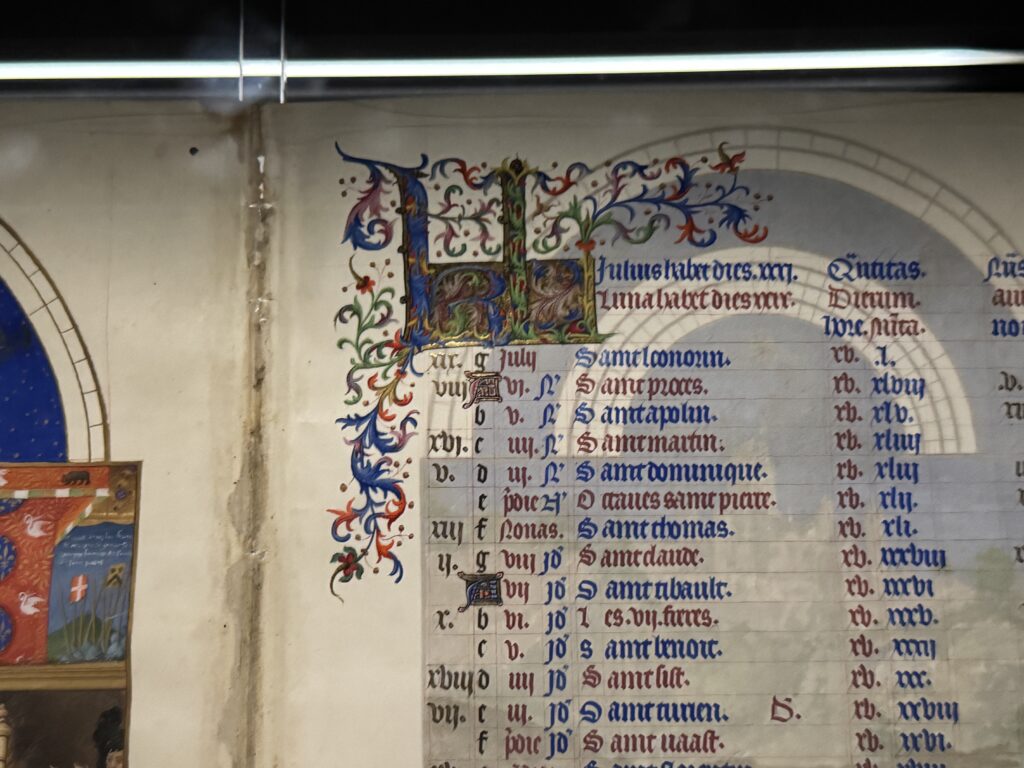 Julius habet dies .xxxi. Q̃ntitas. Nũs
Luna habet dies xxx. Dierum. au
hore. Mĩta. no
xix. g Julij Saint leonorin. xv. .l.
viij A vi. N̾ Saint proces. xv. xlviij .v.
b v. N̾ Saint apolin. xv. xlv.
xvj. c iiij. N̾ Saint martin. xv. xliiij
v. d iij. N̾ Saint dominique. xv. xliij
e p̃die N̾ Octaves saint pierre. xv. xlij.
xiij f Nonas. Saint thomas. xv. xli.
ij. g viij jd̾ Saint claude. xv. xxxviij
A vij jd̾ Saint tibault. xv. xxxvi
x. b vi. jd̾ Les .vij. freres. xv. xxxv.
c v. jd̾ saint benoit. xv. xxxij
xviij d iiij jd̾ Saint sist. xv. xxx.
vij. e iij. jd̾ Saint turien. D. xv. xxviij
f p̃die jd̾ Saint vaast. xv. xxvi.